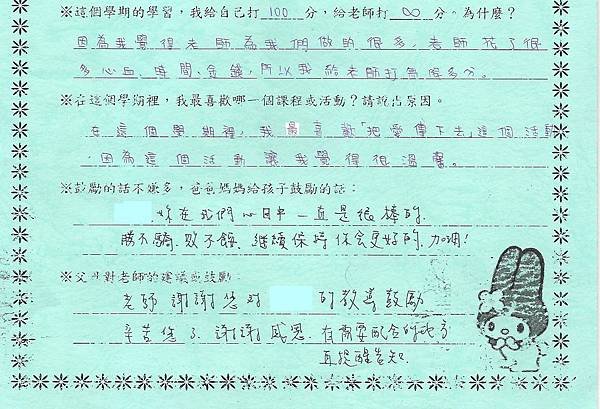 ※這個學期的學習，我給自己打 100 分，給老師打 ∞ 分。為什麼？
因為我覺得老師為我們做的很多，老師花了很
多心血、時間、金錢，所以我給老師打無限多分。
※在這個學期裡，我最喜歡哪一個課程或活動？請說出原因。
在這個學期裡，我最喜歡「把愛傳下去」這個活動
，因為這個活動讓我覺得很溫馨。
※鼓勵的話不嫌多，爸爸媽媽給孩子鼓勵的話：
妳在我們心目中一直是很棒的．
勝不驕．敗不餒．繼續保持 你會更好的．加油！
※父母對老師的建議或鼓勵：
老師 謝謝您對 的教導鼓勵
辛苦您了．謝謝．感恩．有需要配合的地方
再提醒告知．